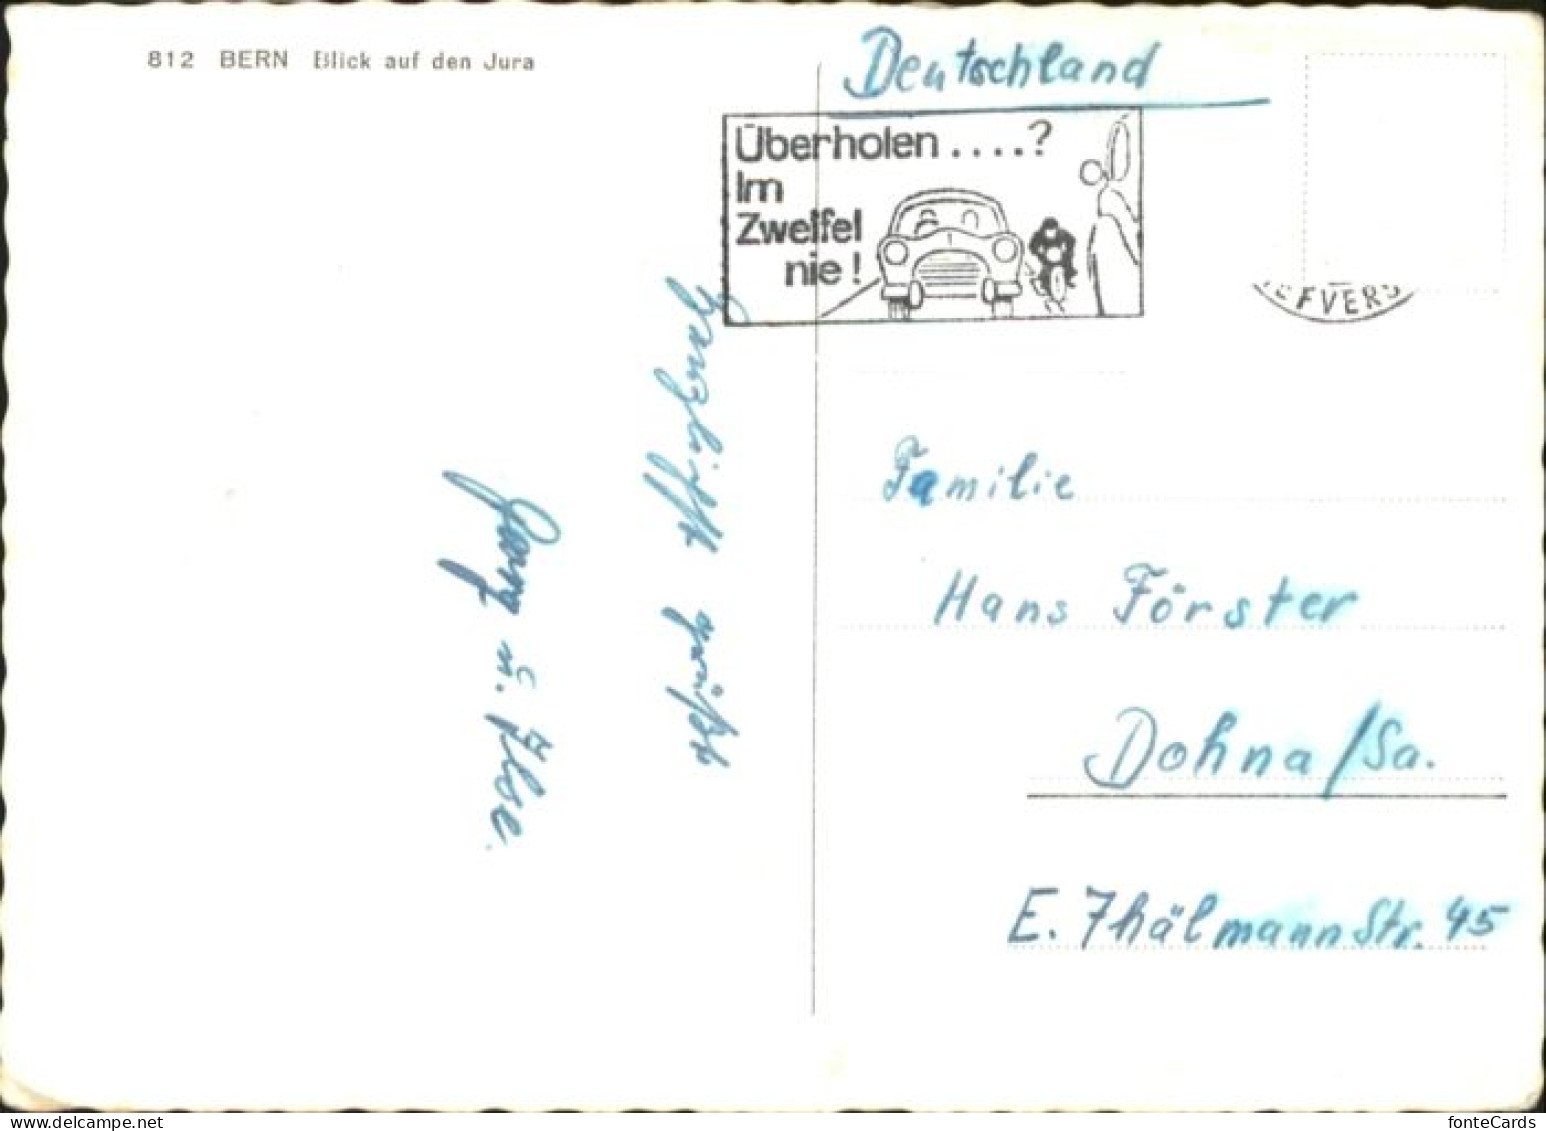 812 BERN Blick auf den Jura
Deutschland
Überholen ....?
Im
Zweifel
nie!
EFVERS
Herzlichst grüßt
u. Ilse.
Familie
Hans Förster
Dohna/Sa.
E. Thälmannstr. 45
delcampe.net
fonteCards